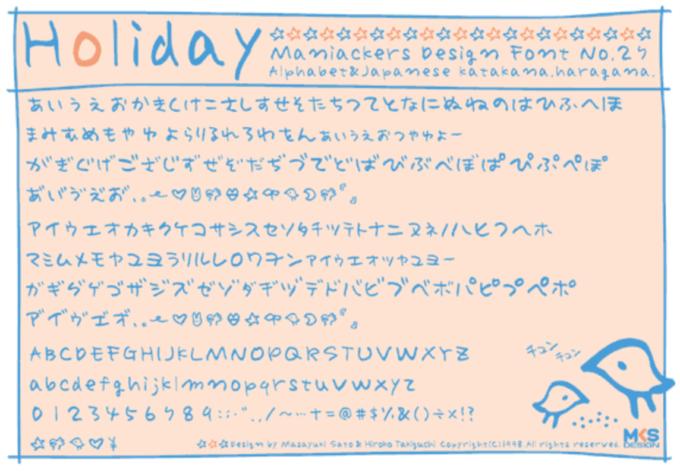 Holiday
☆☆☆☆☆☆☆☆☆☆☆☆☆☆☆☆☆☆☆☆☆☆☆☆
Maniackers Design Font No.27
Alphabet&Japanese katakana.haragama.
あいうえおかきくけこさしすせそたちつてとなにぬねのはひふへほ
まみむめもやゆよらりるれろわをんぁぃぅぇぉっゃゅょー
がぎぐげござじずぜぞだぢづでどばびぶべぼぱぴぷぺぽ
アイウエオカキクケコサシスセソタチツテトナニヌネノハヒフヘホ
マミムメモヤユヨラリルレロワヲンァィゥェォッャュョー
ガギグゲゴザジズゼゾダヂヅデドバビブベボパピプペポ
ABCDEFGHIJKLMNOPQRSTUVWXYZ
abcdefghijklmnopqrstuvwxyz
0123456789:;・".,/~…+=@#$%&()÷×!?
チュン
チュン
☆☆☆Design by Masayuki Sato & Hiroko Takiguchi Copyright(C)1998.All rights reserved.
MKS
DESIGN